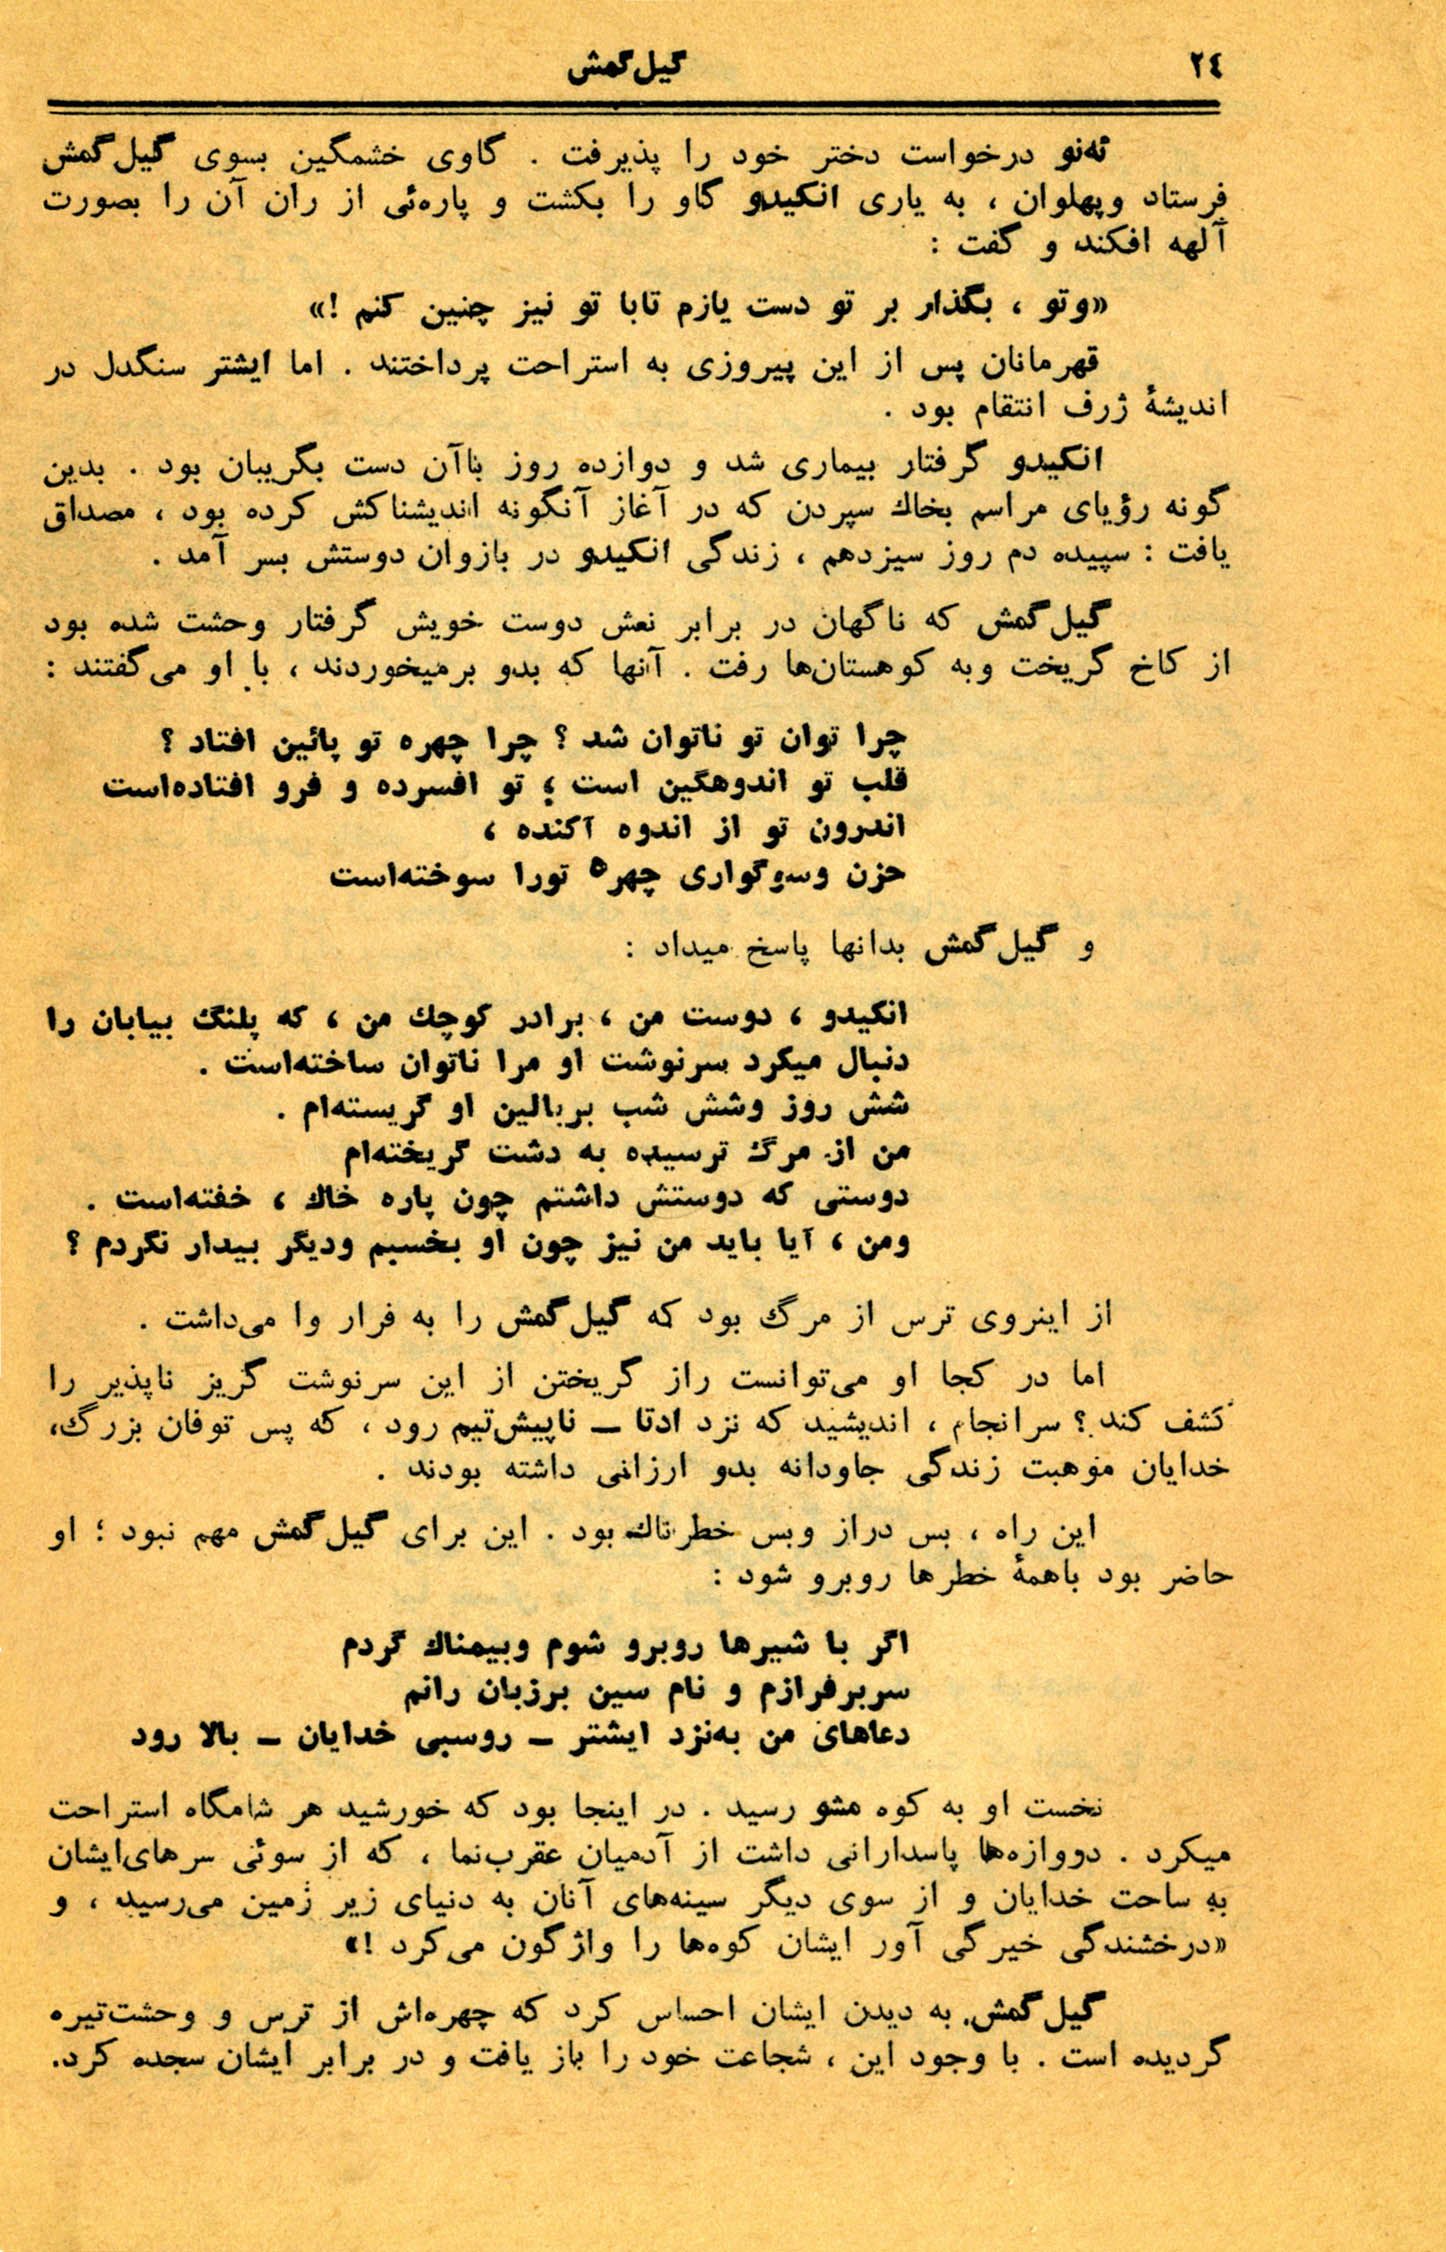 ۲٤
گیل‌گمش
ئه‌نو درخواست دختر خود را پذیرفت . گاوی خشمگین بسوی گیل‌گمش
فرستاد وپهلوان ، به یاری انکیدو گاو را بکشت و پاره‌ئی از ران آن را بصورت
آلهه افکند و گفت :
«وتو ، بگذار بر تو دست یازم تابا تو نیز چنین کنم !»
قهرمانان پس از این پیروزی به استراحت پرداختند . اما ایشتر سنگدل در
اندیشهٔ ژرف انتقام بود .
انکیدو گرفتار بیماری شد و دوازده روز باآن دست بگریبان بود . بدین
گونه رؤیای مراسم بخاك سپردن که در آغاز آنگونه اندیشناکش کرده بود ، مصداق
یافت : سپیده دم روز سیزدهم ، زندگی انکیدو در بازوان دوستش بسر آمد .
گیل‌گمش که ناگهان در برابر نعش دوست خویش گرفتار وحشت شده بود
از کاخ گریخت وبه کوهستان‌ها رفت . آنها که بدو برمیخوردند ، با او می‌گفتند :
چرا توان تو ناتوان شد ؟ چرا چهره تو پائین افتاد ؟
قلب تو اندوهگین است ؛ تو افسرده و فرو افتاده‌است
اندرون تو از اندوه آکنده ،
حزن وسوگواری چهره تورا سوخته‌است
و گیل‌گمش بدانها پاسخ میداد :
انکیدو ، دوست من ، برادر کوچك من ، که پلنگ بیابان را
دنبال میکرد سرنوشت او مرا ناتوان ساخته‌است .
شش روز وشش شب بربالین او گریسته‌ام .
من از مرگ ترسیده به دشت گریخته‌ام
دوستی که دوستش داشتم چون پاره خاك ، خفته‌است .
ومن ، آیا باید من نیز چون او بخسبم ودیگر بیدار نگردم ؟
از اینروی ترس از مرگ بود که گیل‌گمش را به فرار وا می‌داشت .
اما در کجا او می‌توانست راز گریختن از این سرنوشت گریز ناپذیر را
کشف کند ؟ سرانجام ، اندیشید که نزد ادتا ـ ناپیش‌تیم رود ، که پس توفان بزرگ،
خدایان موهبت زندگی جاودانه بدو ارزانی داشته بودند .
این راه ، بس دراز وبس خطرناك بود . این برای گیل‌گمش مهم نبود ؛ او
حاضر بود باهمهٔ خطرها روبرو شود :
اگر با شیرها روبرو شوم وبیمناك گردم
سربرفرازم و نام سین برزبان رانم
دعاهای من به‌نزد ایشتر ـ روسبی خدایان ـ بالا رود
نخست او به کوه مشو رسید . در اینجا بود که خورشید هر شامگاه استراحت
میکرد . دووازه‌ها پاسدارانی داشت از آدمیان عقرب‌نما ، که از سوئی سرهای‌ایشان
به ساحت خدایان و از سوی دیگر سینه‌های آنان به دنیای زیر زمین می‌رسید ، و
«درخشندگی خیرگی آور ایشان کوه‌ها را واژگون می‌کرد !»
گیل‌گمش. به دیدن ایشان احساس کرد که چهره‌اش از ترس و وحشت‌تیره
گردیده است . با وجود این ، شجاعت خود را باز یافت و در برابر ایشان سجده کرد.